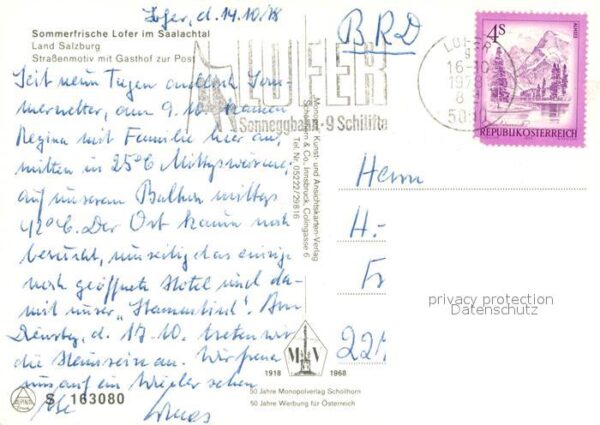 Lofer, d. 14.10.78
Sommerfrische Lofer im Saalachtal
Land Salzburg
Straßenmotiv mit Gasthof zur Post
BRD
LOFER
Sonneggbahn · 9 Schilifte
LOFER
16-10
5090
4S
REPUBLIK ÖSTERREICH
Seit neun Tagen
am 9.10. kamen
Regina mit Familie hier an,
mitten in 25°C
auf unserem Balkon mittags
42°C. Der Ort kaum noch
besucht, das einzige
noch geöffnete Hotel und da-
mit unser „Stammlokal". Am
Dienstag, d. 17.10. treten wir
die Heimreise an. Wir freuen
uns auf ein Wiedersehen
Monopol Kunst- und Ansichtskarten-Verlag
Schöllhorn & Co. Innsbruck, Colingasse 6
Tel. Nr. 05222/29816
Herrn
H.-
Fr
221
privacy protection
Datenschutz
M V
1918 1968
50 Jahre Monopolverlag Schöllhorn
50 Jahre Werbung für Österreich
S 163080